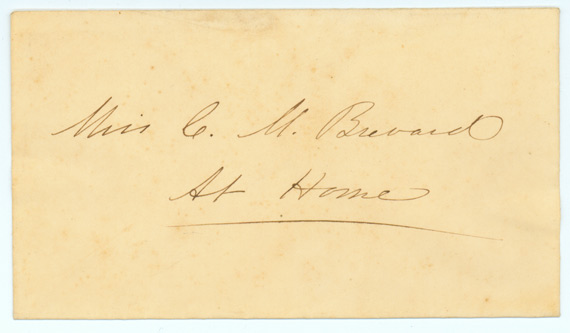 Miss C. M. Brevard
At Home